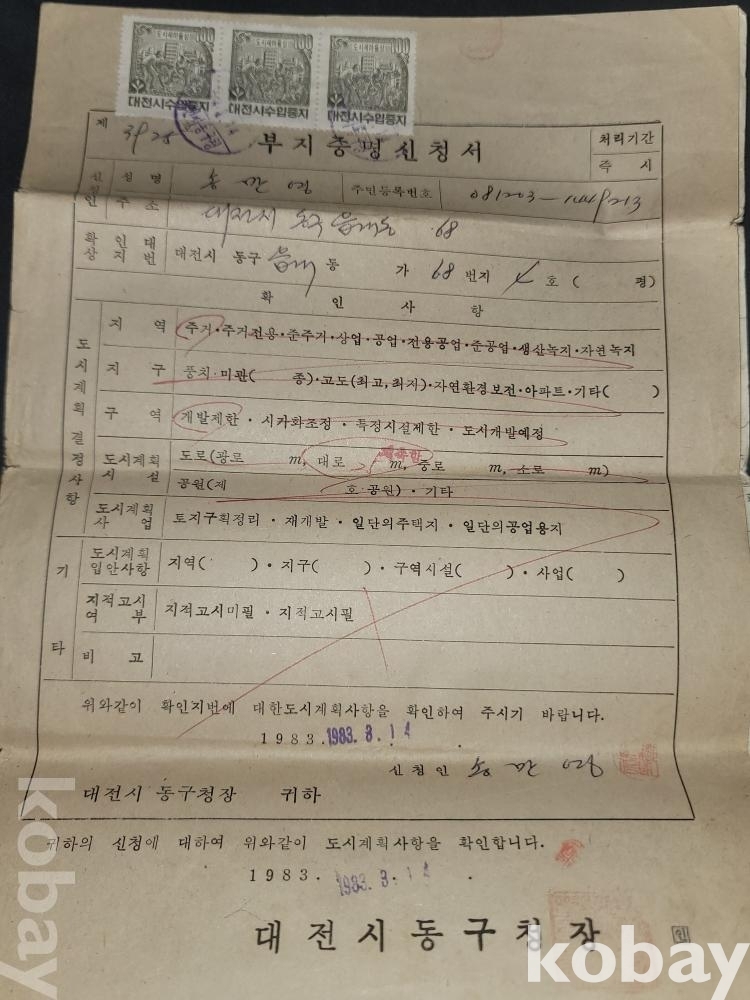 도시새마을상 100 도시새마을상 100 도시새마을상 100
대전시수입증지 대전시수입증지 대전시수입증지
제 3925 부지증명신청서 처리기간
즉시
신청인 성명 송만영 주민등록번호
주소 대전시 동구 68
확인대상지번 대전시 동구 동 가 68 번지 호 ( 평)
확인사항
도시계획결정사항
지역 주거·주거전용·준주거·상업·공업·전용공업·준공업·생산녹지·자연녹지
지구 풍치·미관( 종)·고도(최고,최저)·자연환경보전·아파트·기타( )
구역 개발제한·시가화조정·특정시설제한·도시개발예정
도시계획시설 도로(광로 m, 대로 m, 중로 m, 소로 m)
공원(제 호공원)·기타
도시계획사업 토지구획정리·재개발·일단의주택지·일단의공업용지
기타
도시계획입안사항 지역( )·지구( )·구역시설( )·사업( )
지적고시여부 지적고시미필·지적고시필
비고
위와같이 확인지번에 대한도시계획사항을 확인하여 주시기 바랍니다.
1983. 1983. 3. 14 .
신청인 송만영
대전시 동구청장 귀하
귀하의 신청에 대하여 위와같이 도시계획사항을 확인합니다.
1983. 1983. 3. 14 .
대전시동구청장 인
kobay
kobay